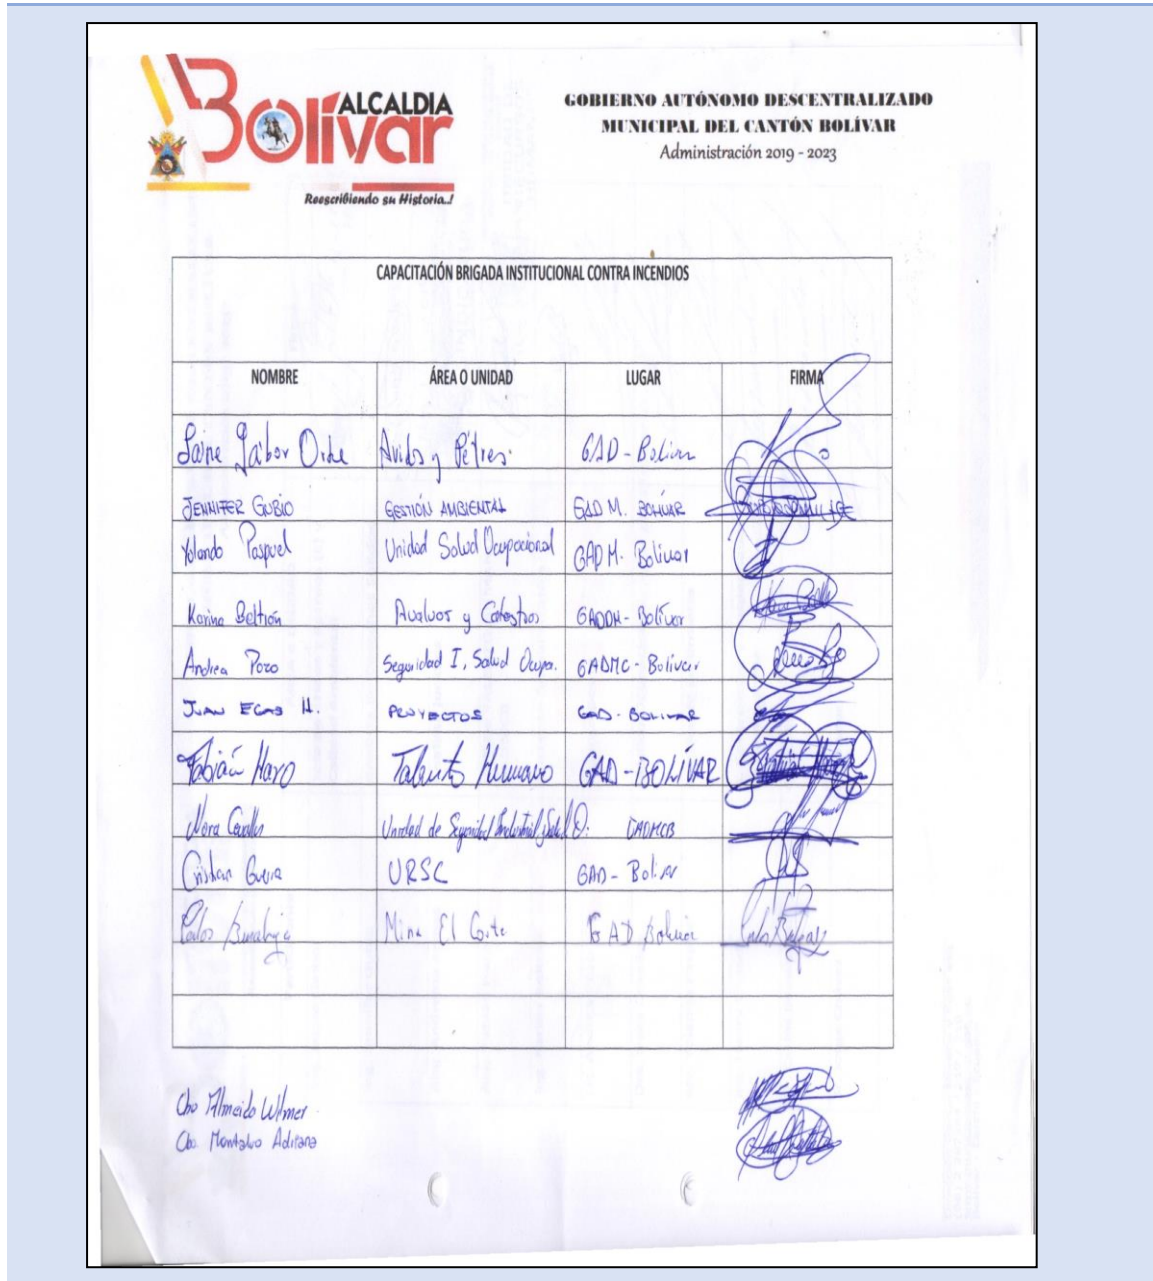 ALCALDIA
Bolívar
Reescribiendo su Historia..!
GOBIERNO AUTÓNOMO DESCENTRALIZADO
MUNICIPAL DEL CANTÓN BOLÍVAR
Administración 2019 - 2023
CAPACITACIÓN BRIGADA INSTITUCIONAL CONTRA INCENDIOS
NOMBRE ÁREA O UNIDAD LUGAR FIRMA
Gaibor GAD - Bolívar
JENNIFER GUBIO GESTIÓN AMBIENTAL GAD M. BOLÍVAR
Yolanda Paspuel Unidad Salud Ocupacional GAD M. Bolivar
Karina Beltrán Avaluos y Catastros GADDM - Bolívar
Andrea Pozo Seguridad I, Salud Ocupa. GADMC - Bolívar
JUAN EGAS H. PROYECTOS GAD - BOLIVAR
Fabián Haro Talento Humano GAD - BOLÍVAR
Nora Unidad de Seguridad Industrial Salud O. GADMCB
Cristian Guerra URSC GAD - Bolívar
Carlos Mina El GAD Bolívar
Cbo Almeida Wilmer
Cbo. Montalvo Adriana